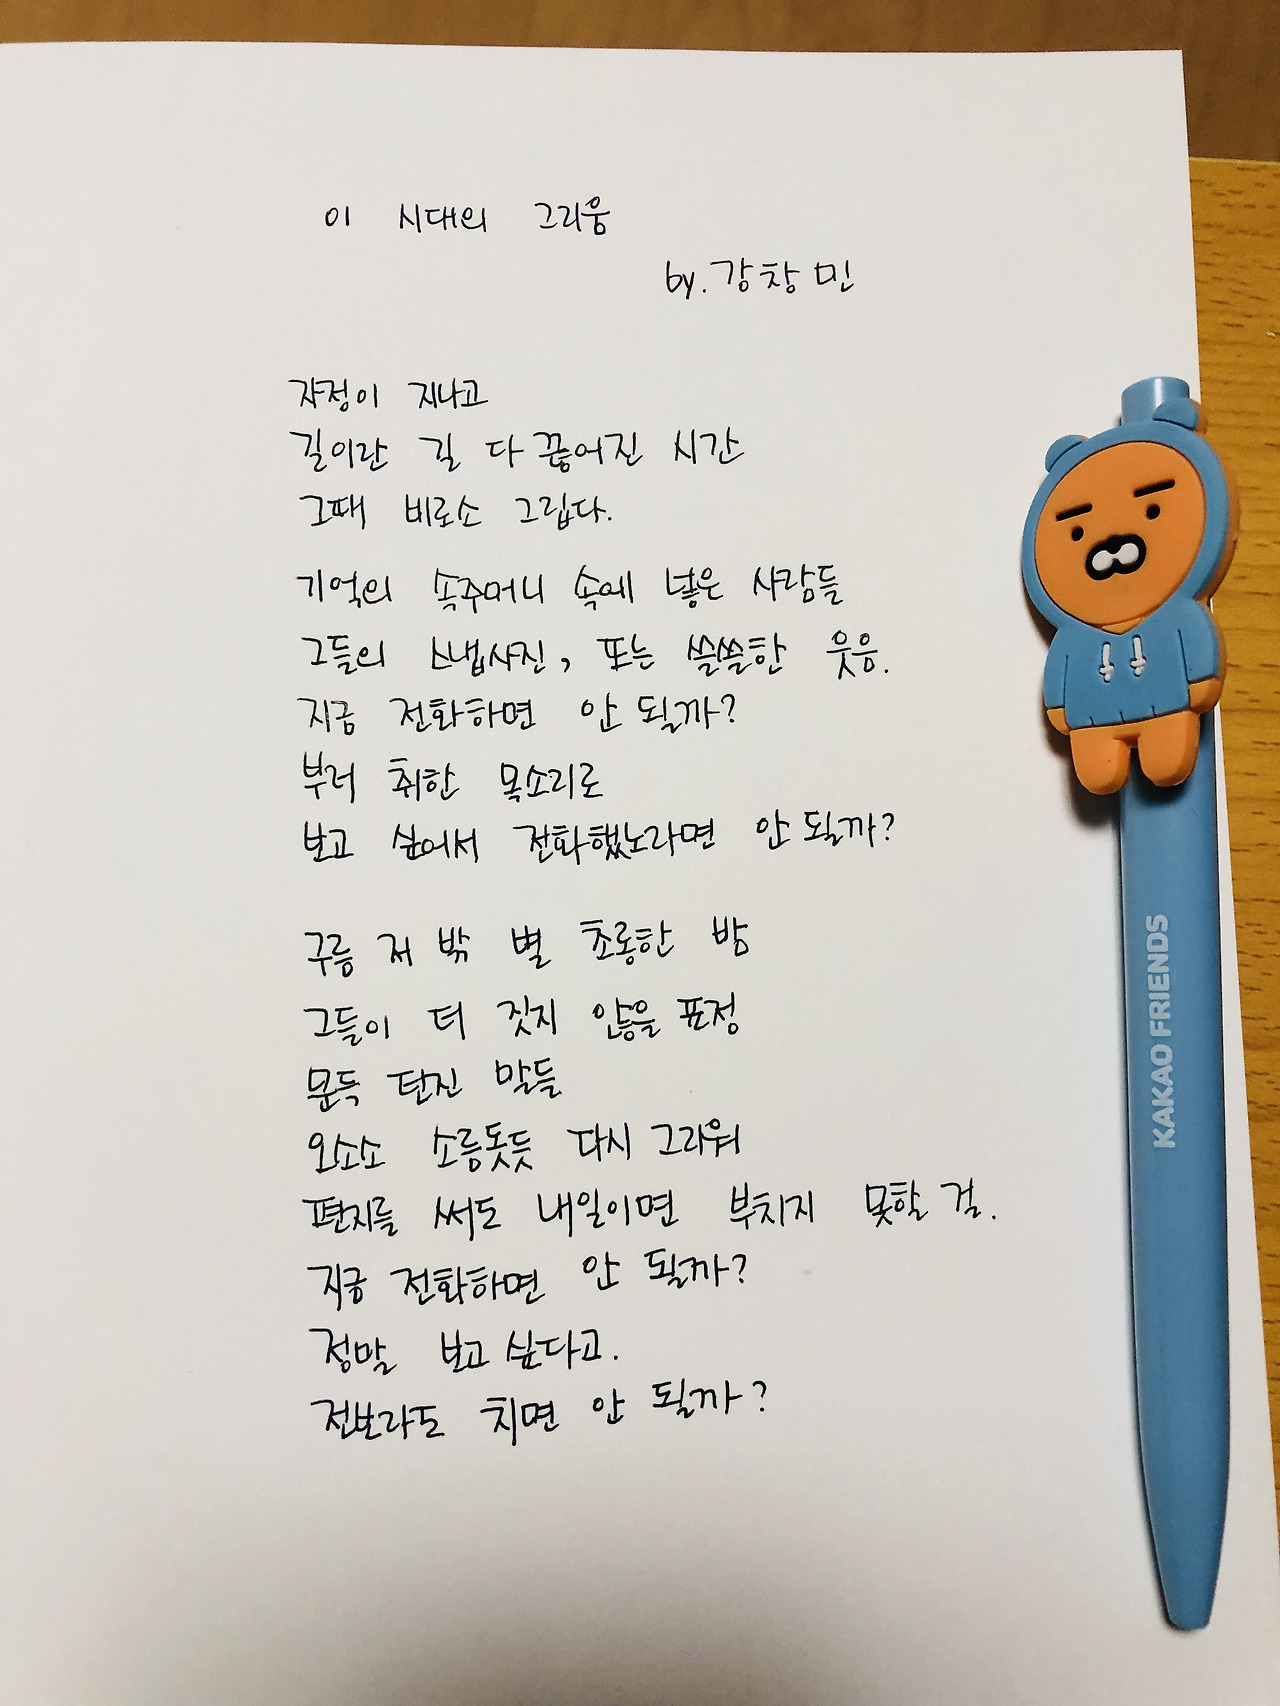 이 시대의 그리움
by. 강창민
자정이 지나고
길이란 길 다 끊어진 시간
그때 비로소 그립다.
기억의 속주머니 속에 넣은 사람들
그들의 스냅사진, 또는 쓸쓸한 웃음.
지금 전화하면 안 될까?
부러 취한 목소리로
보고 싶어서 전화했노라면 안 될까?
구름 저 밖 별 초롱한 밤
그들이 더 짓지 않을 표정
문득 던진 말들
오소소 소름돋듯 다시 그리워
편지를 써도 내일이면 부치지 못할 걸.
지금 전화하면 안 될까?
정말 보고 싶다고.
전보라도 치면 안 될까?
KAKAO FRIENDS